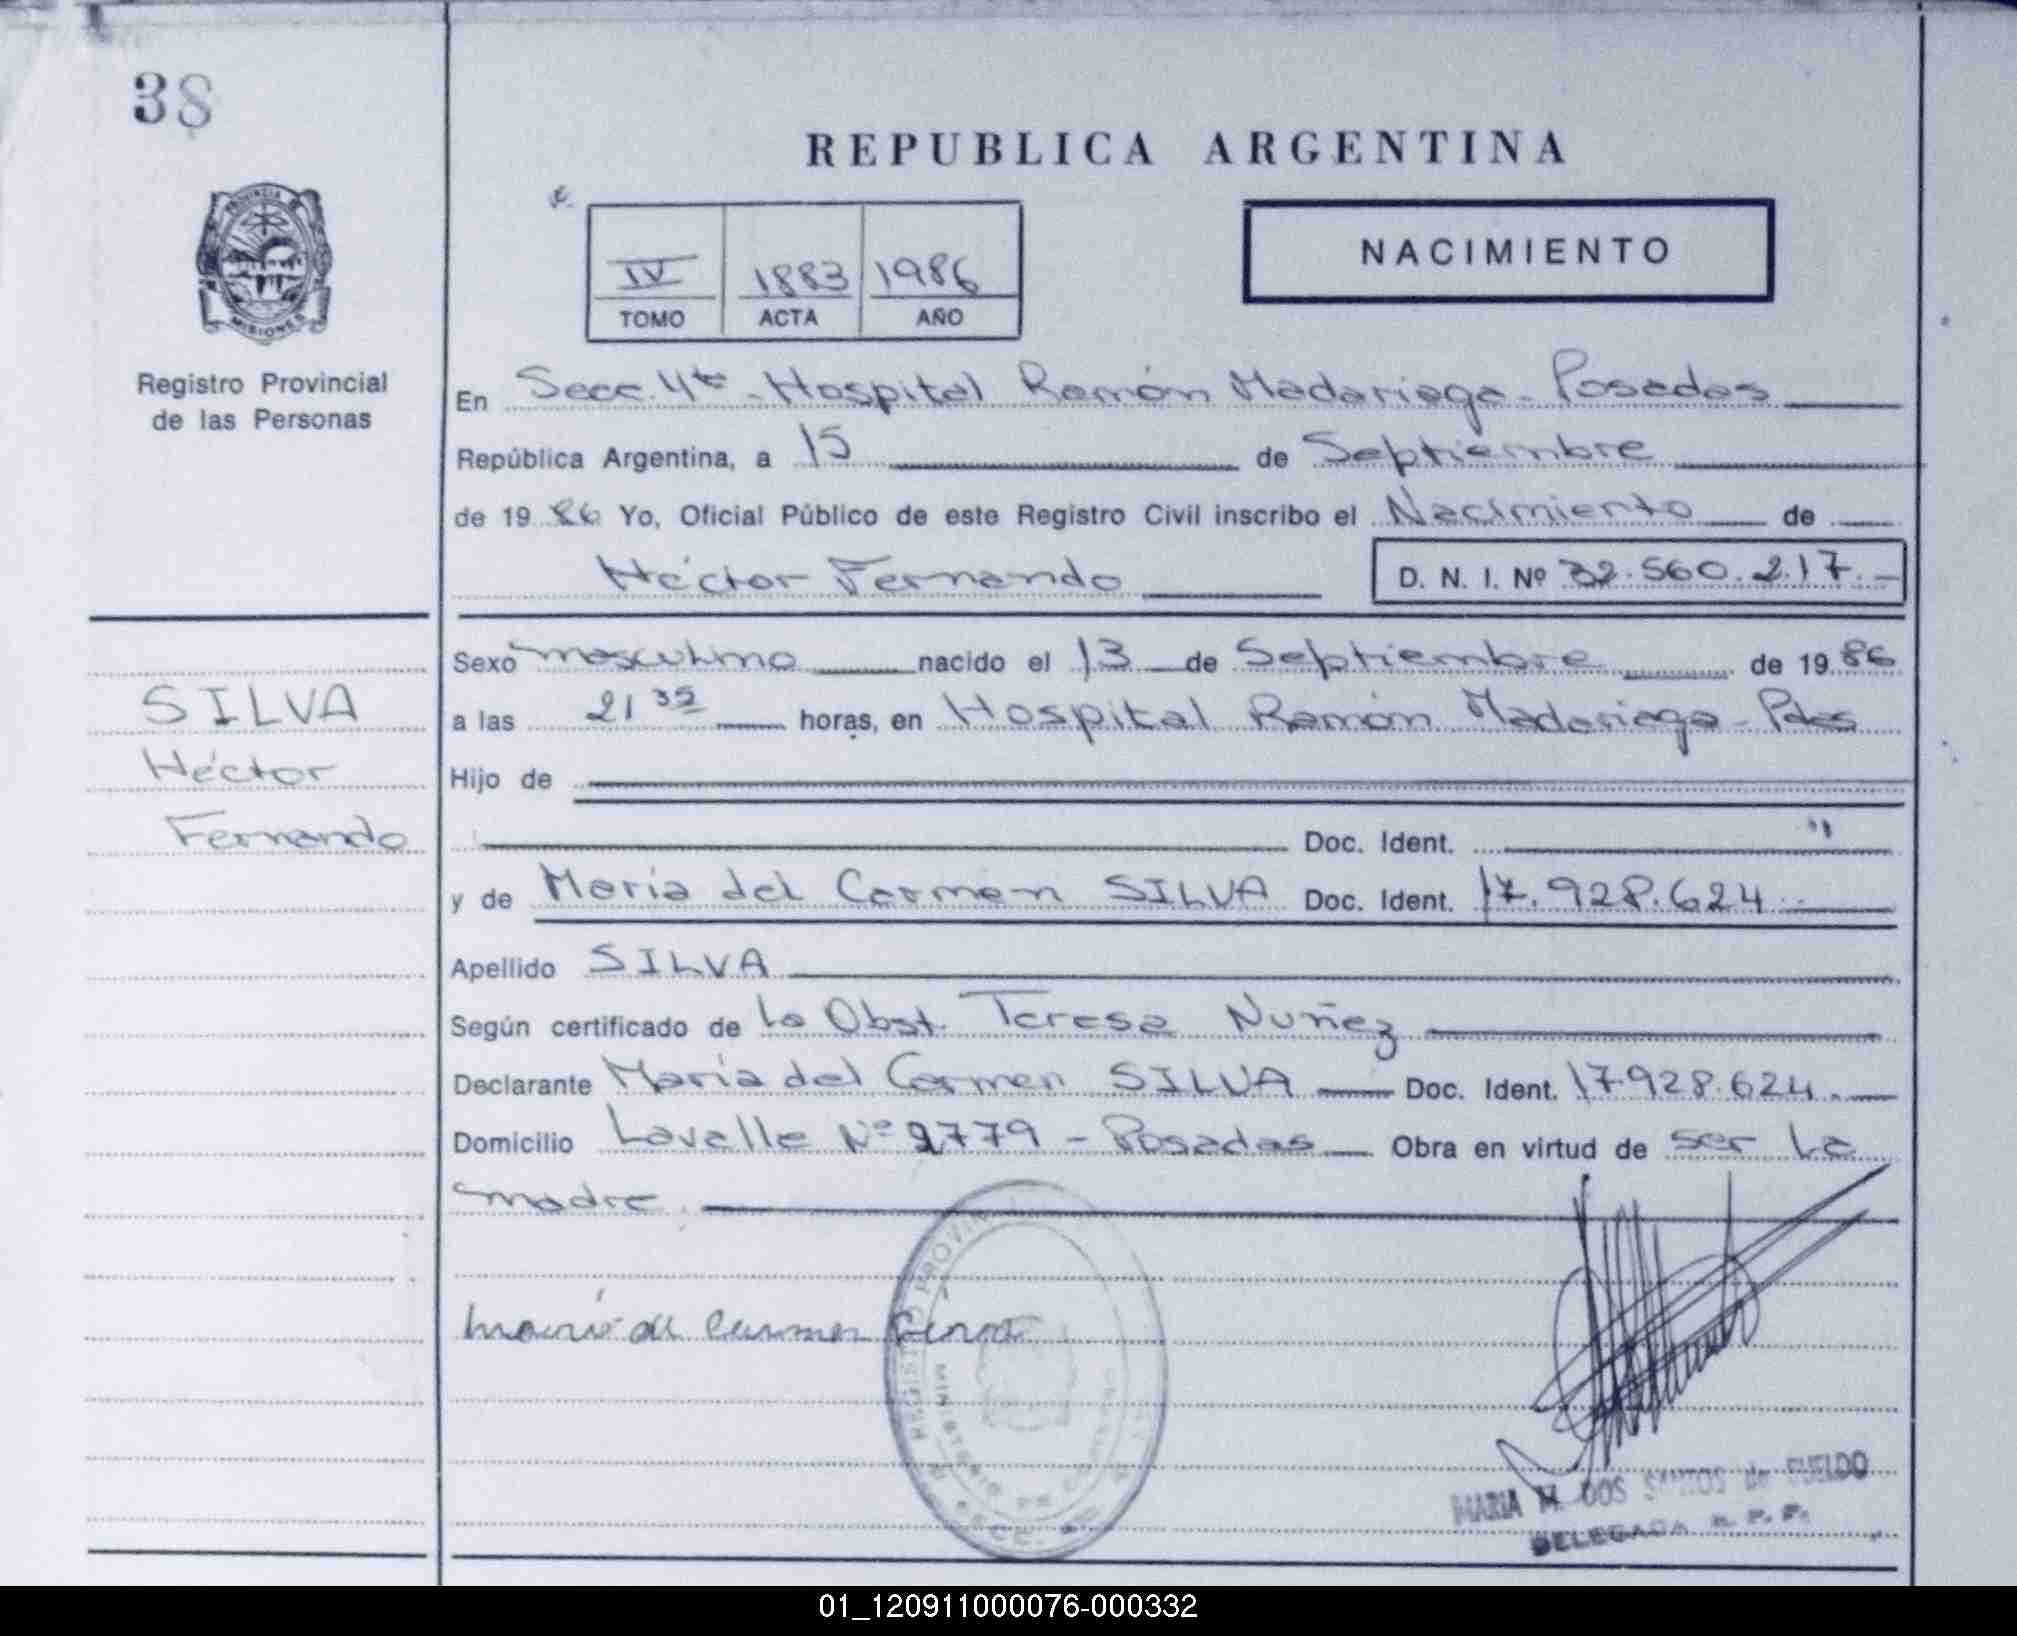 38
REPUBLICA ARGENTINA
PROVINCIA
MISIONES
Registro Provincial
de las Personas
IV 1883 1986
TOMO ACTA AÑO
NACIMIENTO
En Secc. 4ta - Hospital Ramón Madariaga - Posadas
República Argentina, a 15 de Septiembre
de 1986 Yo, Oficial Público de este Registro Civil inscribo el Nacimiento de
Héctor Fernando D. N. I. Nº 32.560.217.-
SILVA
Héctor
Fernando
Sexo masculino nacido el 13 de Septiembre de 1986
a las 21 35 horas, en Hospital Ramón Madariaga - Pdas
Hijo de
Doc. Ident. "
y de María del Carmen SILVA Doc. Ident. 17.928.624
Apellido SILVA
Según certificado de la Obst. Teresa Nuñez
Declarante María del Carmen SILVA Doc. Ident. 17.928.624.
Domicilio Lavalle Nº 2779 - Posadas Obra en virtud de ser la
madre
REGISTRO PROVIN
MINISTERIO DE
María del Carmen
MARIA M. DOS SANTOS de SUELDO
DELEGADA R. P. P.
01_120911000076-000332